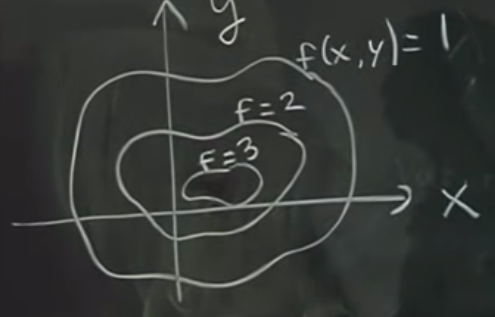 y
f(x,y)=1
f=2
f=3
x